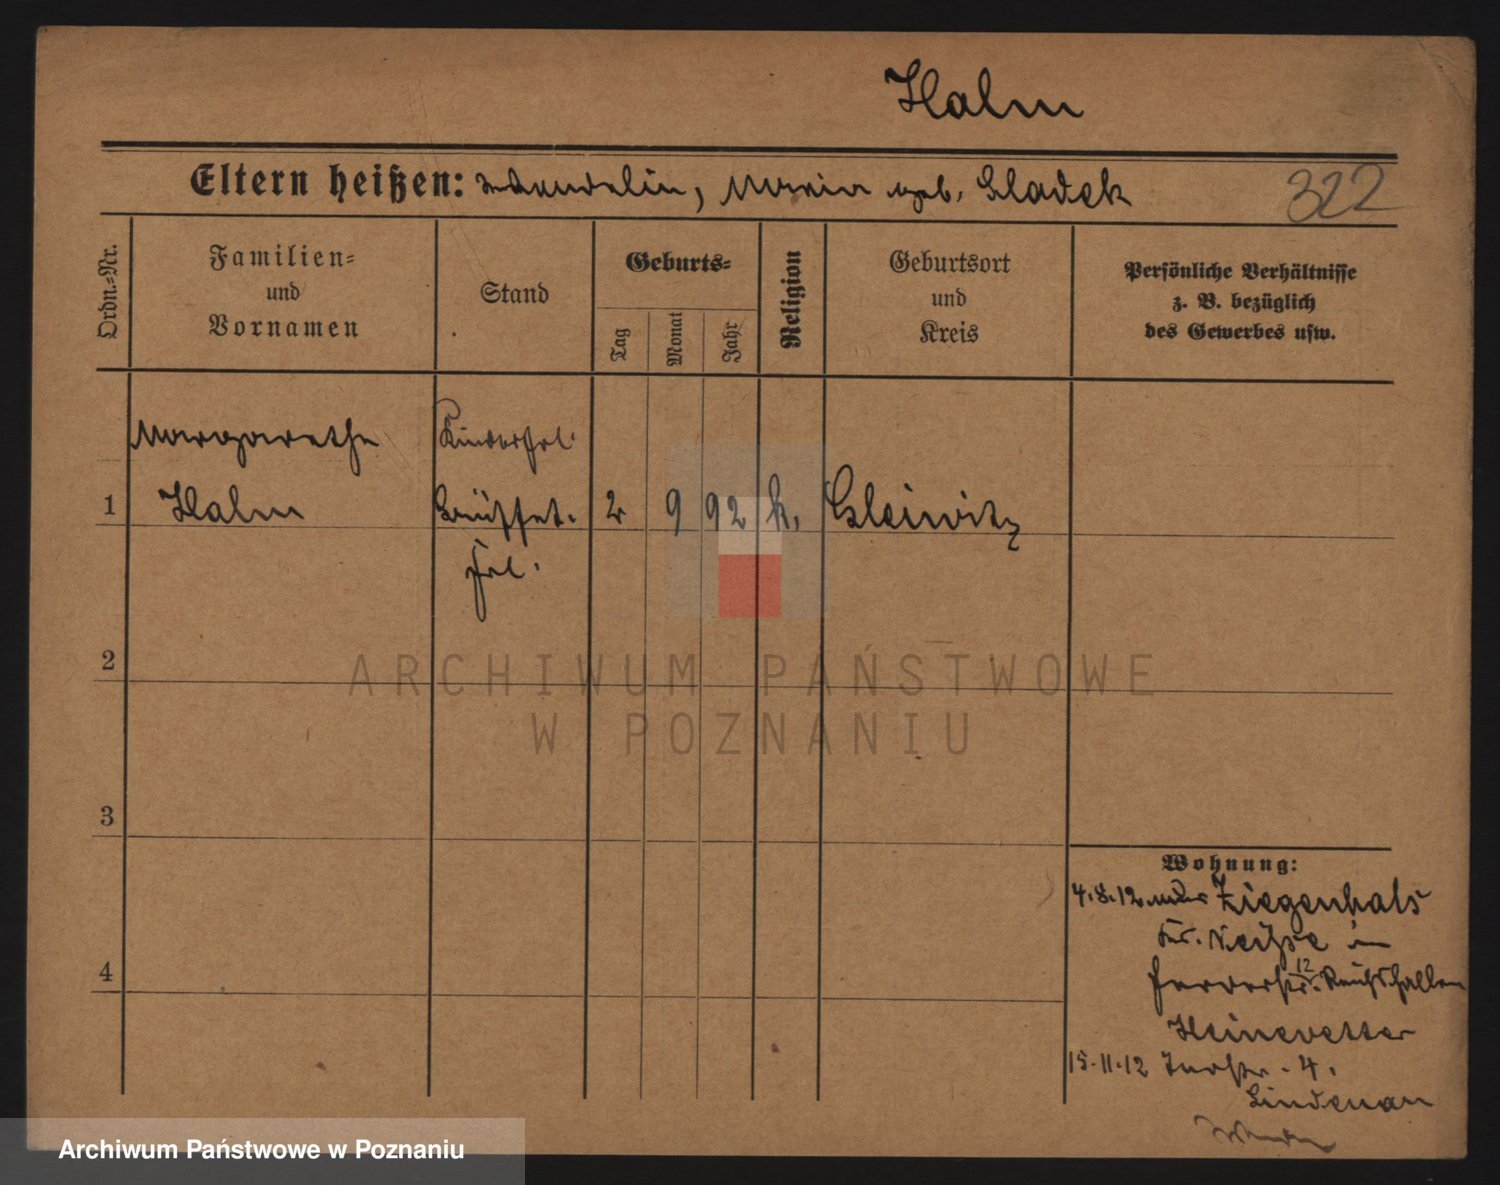 Halm
Eltern heißen: Wendelin, Maria geb. Gladek
322
Ordn.-Nr.
Familien-
und
Vornamen
Stand
Geburts-
Tag
Monat
Jahr
Religion
Geburtsort
und
Kreis
Persönliche Verhältnisse
z. B. bezüglich
des Gewerbes usw.
Margarethe Kinderfrl.
1 Halm Büffet- 2 9 92 k. Gleiwitz
frl.
2
ARCHIWUM PAŃSTWOWE
W POZNANIU
3
Wohnung:
4.8.12 Ziegenhals
Kr. Neiße in
4
12 Reichshallen
Heinevetter
15.11.12 4.
Lindenau
Archiwum Państwowe w Poznaniu